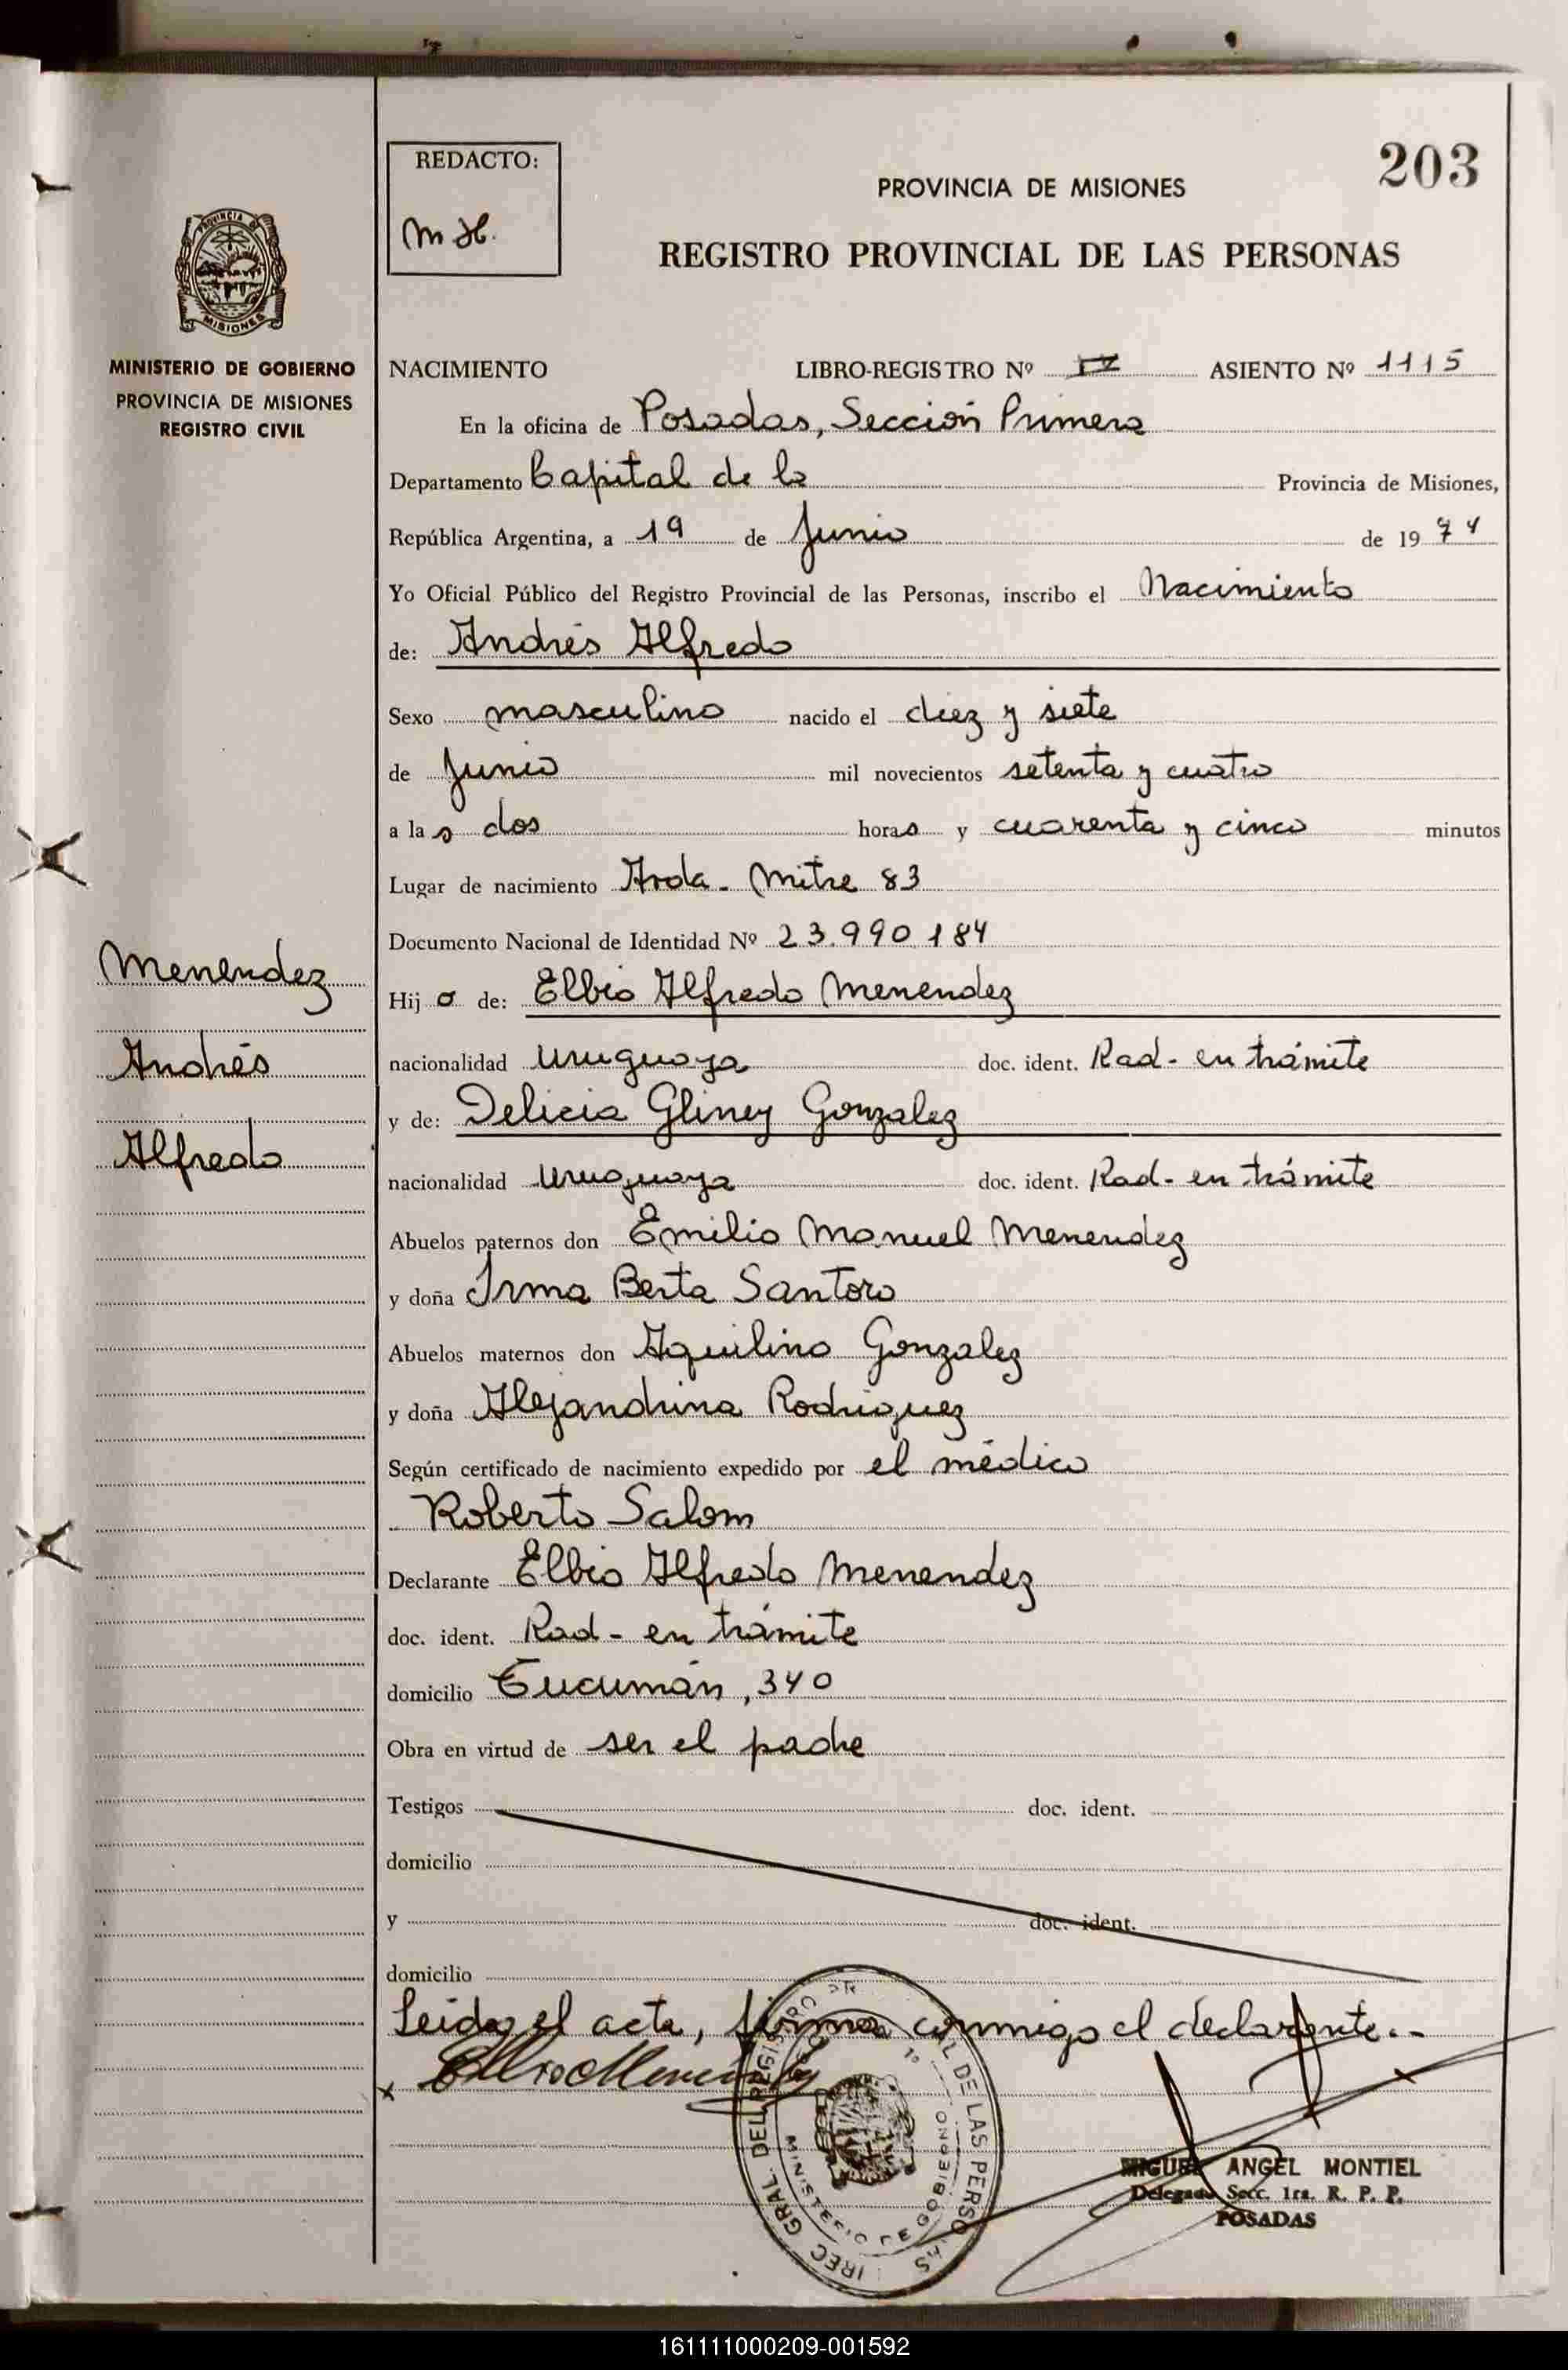 203
REDACTO:
M H.
PROVINCIA DE MISIONES
REGISTRO PROVINCIAL DE LAS PERSONAS
PROVINCIA DE
MISIONES
MINISTERIO DE GOBIERNO
PROVINCIA DE MISIONES
REGISTRO CIVIL
Menendez
Andrés
Alfredo
NACIMIENTO LIBRO-REGISTRO Nº IV ASIENTO Nº 1115
En la oficina de Posadas, Sección Primera
Departamento Capital de la Provincia de Misiones,
República Argentina, a 19 de Junio de 1974
Yo Oficial Público del Registro Provincial de las Personas, inscribo el Nacimiento
de: Andrés Alfredo
Sexo masculino nacido el diez y siete
de Junio mil novecientos setenta y cuatro
a las dos horas y cuarenta y cinco minutos
Lugar de nacimiento Avda. Mitre 83
Documento Nacional de Identidad Nº 23.990.184
Hijo de: Elbio Alfredo Menendez
nacionalidad uruguaya doc. ident. Rad- en trámite
y de: Delicia Gliney Gonzalez
nacionalidad uruguaya doc. ident. Rad- en trámite
Abuelos paternos don Emilio Manuel Menendez
y doña Irma Berta Santoro
Abuelos maternos don Aquilino Gonzalez
y doña Alejandrina Rodriguez
Según certificado de nacimiento expedido por el médico
Roberto Salom
Declarante Elbio Alfredo Menendez
doc. ident. Rad- en trámite
domicilio Tucumán, 340
Obra en virtud de ser el padre
Testigos doc. ident.
domicilio
y doc. ident.
domicilio
Leida el acta, firma conmigo el declarante.-
x
MIGUEL ANGEL MONTIEL
Delegado Secc. 1ra. R. P. P.
POSADAS
DIREC GRAL. DEL REGISTRO PROVINCIAL DE LAS PERSONAS
MINISTERIO DE GOBIERNO
161111000209-001592